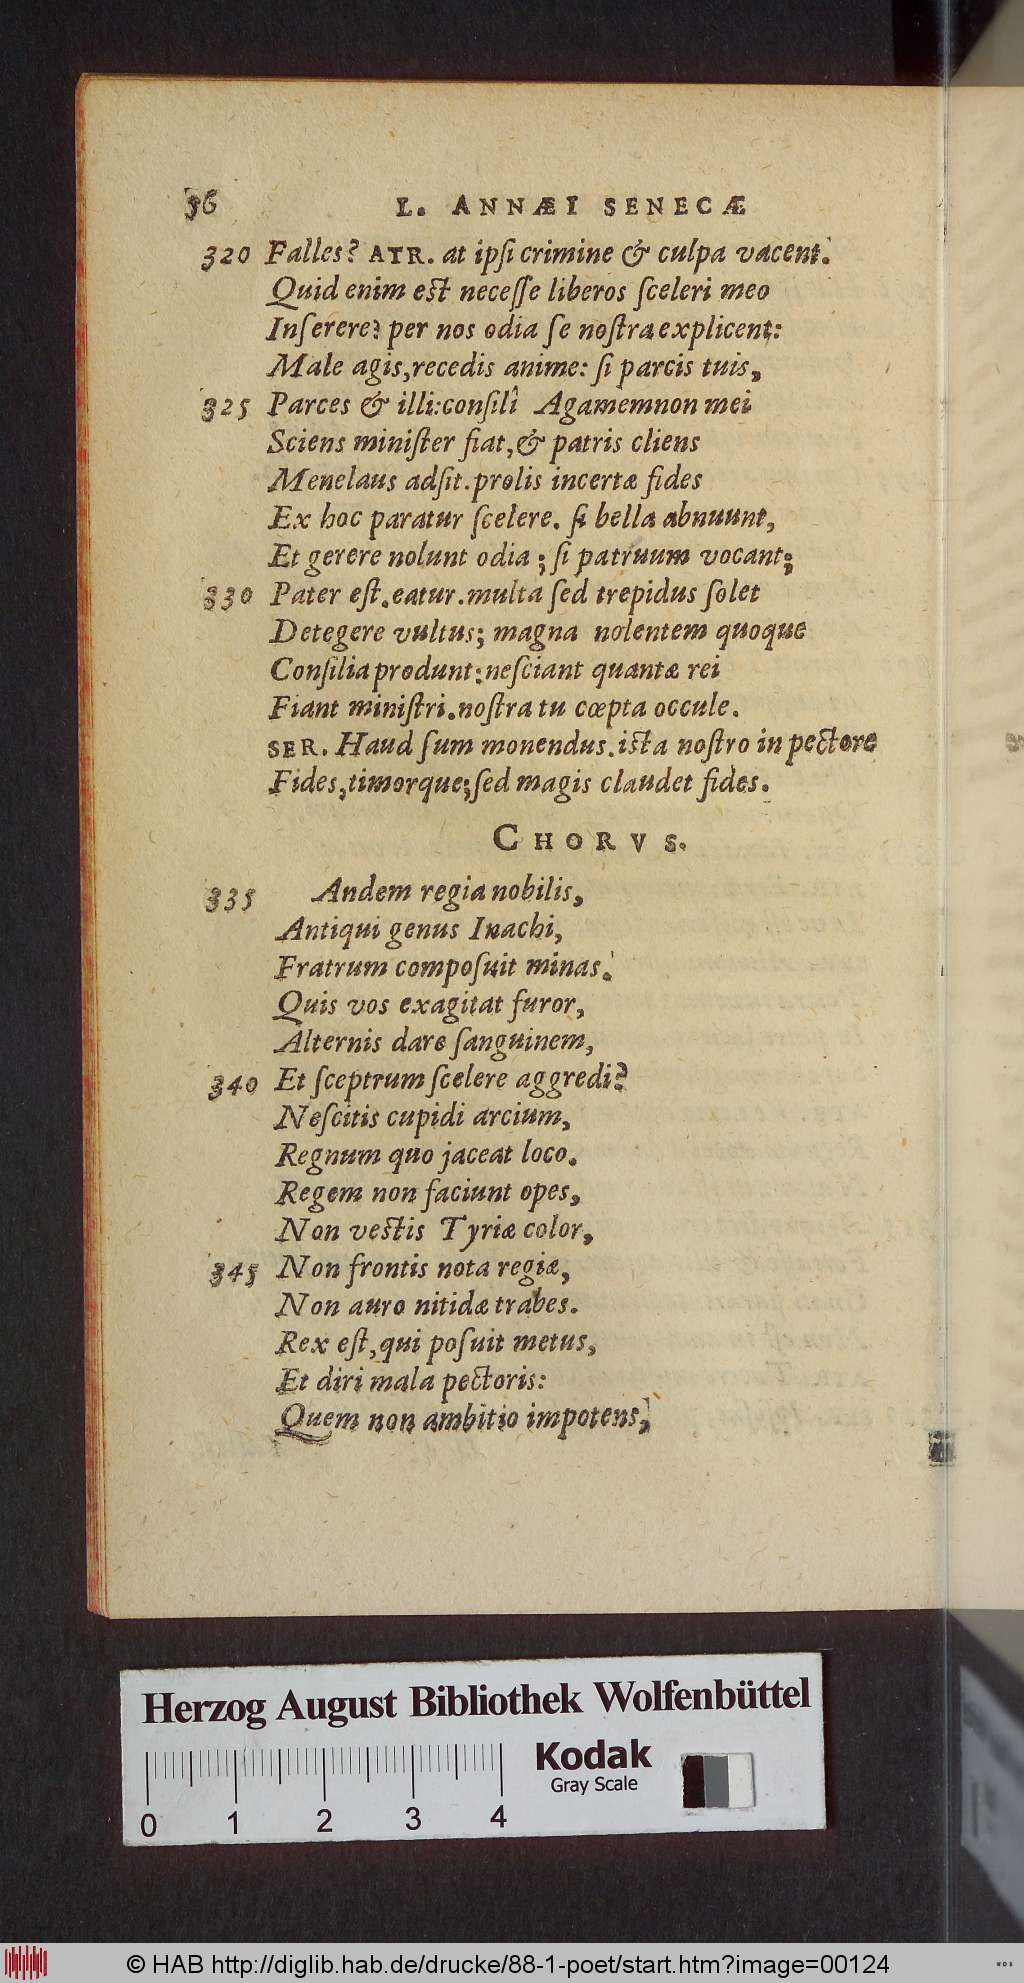 36 L. ANNÆI SENECÆ
320 Falles? ATR. at ipſi crimine & culpa vacent.
Quid enim est neceſſe liberos ſceleri meo
Inſerere? per nos odia ſe noſtra explicent:
Male agis, recedis anime: ſi parcis tuis,
325 Parces & illi: conſilî Agamemnon mei
Sciens miniſter fiat, & patris cliens
Menelaus adſit. prolis incertæ fides
Ex hoc paratur ſcelere. ſi bella abnuunt,
Et gerere nolunt odia; ſi patruum vocant;
330 Pater eſt. eatur. multa ſed trepidus ſolet
Detegere vultus; magna nolentem quoque
Conſilia produnt: neſciant quantæ rei
Fiant miniſtri. noſtra tu cœpta occule.
SER. Haud ſum monendus. ista noſtro in pectore
Fides, timorque; ſed magis claudet fides.
CHORVS.
335 Andem regia nobilis,
Antiqui genus Inachi,
Fratrum compoſuit minas.
Quis vos exagitat furor,
Alternis dare ſanguinem,
340 Et ſceptrum ſcelere aggredi?
Neſcitis cupidi arcium,
Regnum quo jaceat loco.
Regem non faciunt opes,
Non vestis Tyriæ color,
345 Non frontis nota regiæ,
Non auro nitidæ trabes.
Rex eſt, qui poſuit metus,
Et diri mala pectoris:
Quem non ambitio impotens,
Herzog August Bibliothek Wolfenbüttel
Kodak
Gray Scale
0 1 2 3 4
© HAB http://diglib.hab.de/drucke/88-1-poet/start.htm?image=00124